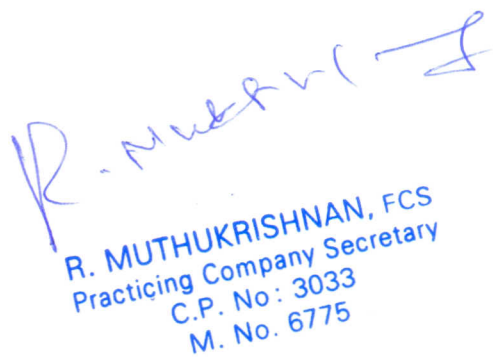 R. Muthukri
R. MUTHUKRISHNAN, FCS
Practicing Company Secretary
C.P. No : 3033
M. No. 6775